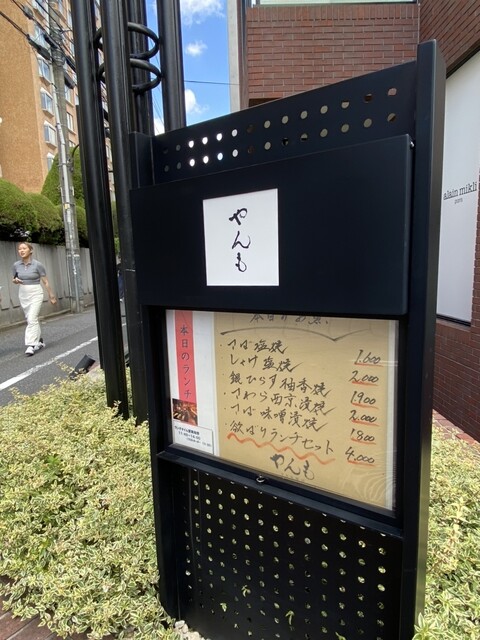 やんも
alain mikli
本日のランチ
本日のお魚
・さば塩焼 1,600
・しゃけ塩焼 2,000
・銀ひらす柚香焼 1,900
・さわら西京漬焼 2,000
・さば味噌漬焼 1,800
・欲ばりランチセット 4,000
やんも